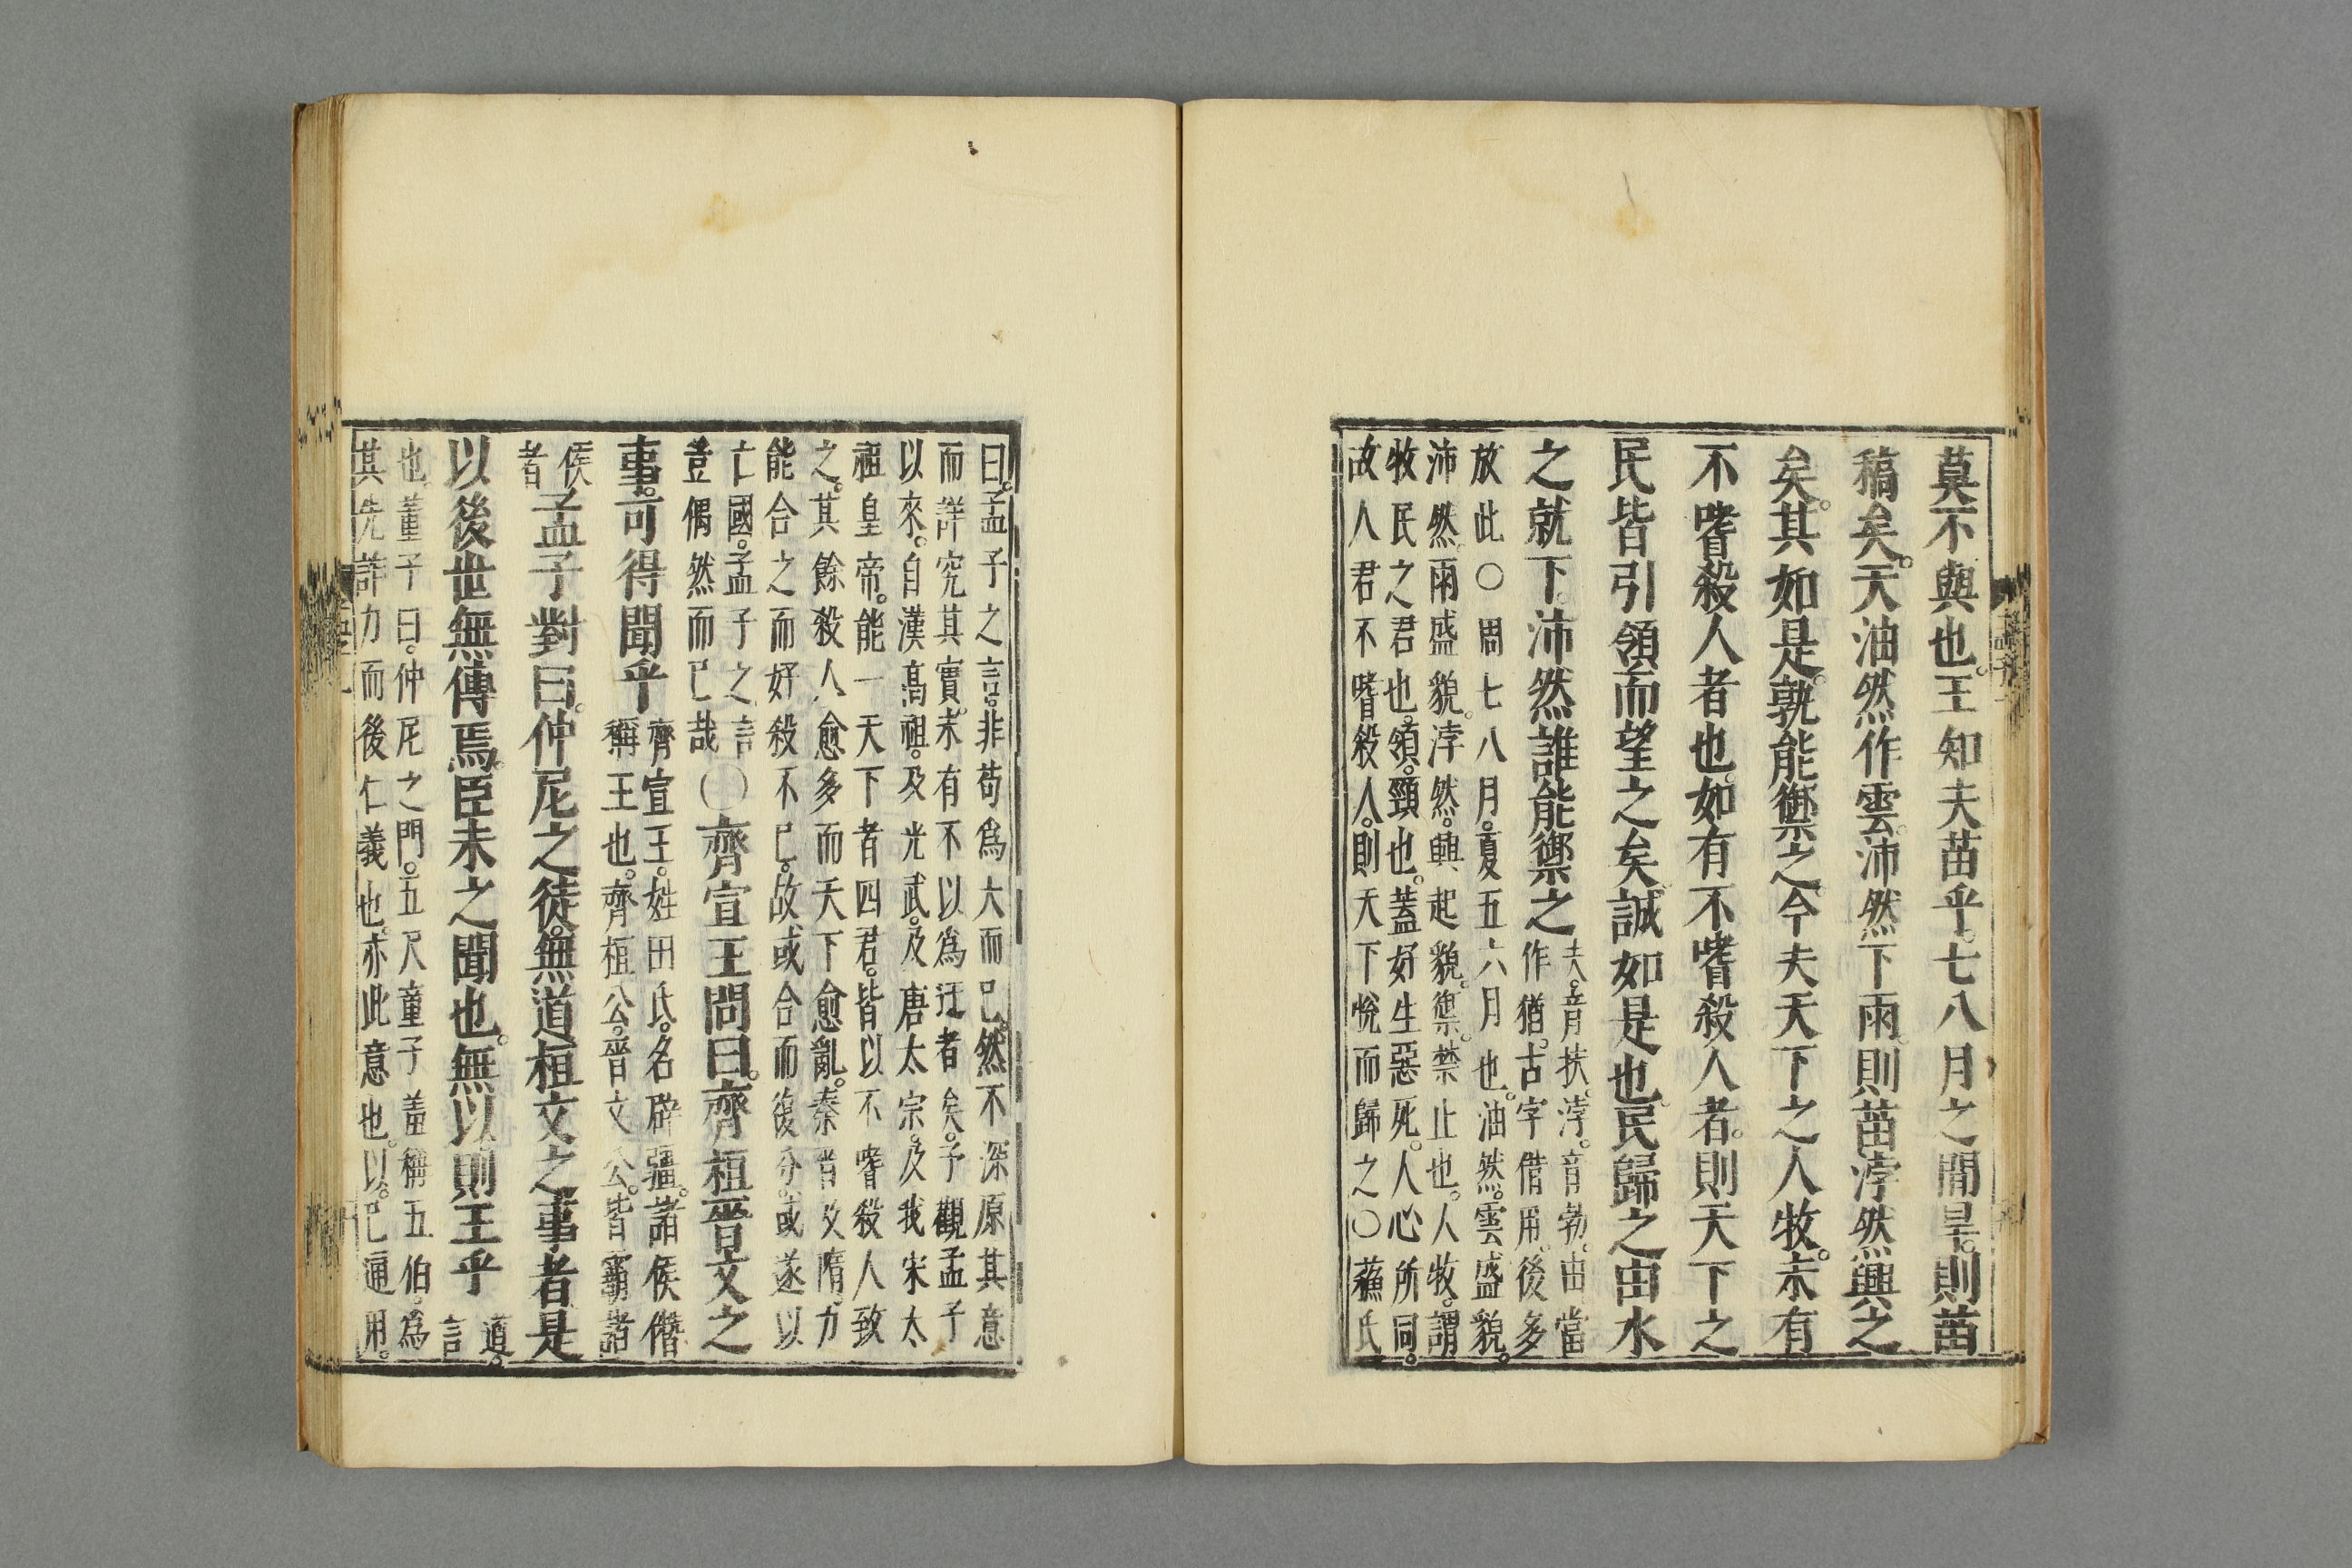 莫不與也。王知夫苗乎。七八月之間旱。則苗
稿矣。天油然作雲。沛然下雨。則苗浡然興之
矣。其如是。孰能禦之。今夫天下之人牧。未有
不嗜殺人者也。如有不嗜殺人者。則天下之
民皆引領而望之矣。誠如是也。民歸之由水
之就下。沛然誰能禦之
夫。音扶。浡。音勃。由當
作猶。古字借用。後多
放此〇周七八月。夏五六月也。油然。雲盛貌。
沛然。雨盛貌。浡然。興起貌。禦。禁止也。人牧。謂
牧民之君也。領。頸也。蓋好生惡死。人心所同。
故人君不嗜殺人。則天下悅而歸之〇蘇氏
曰。孟子之言。非苟為大而已。然不深原其意
而詳究其實。未有不以為迂者矣。予觀孟子
以來。自漢高祖。及光武。及唐太宗。及我宋太
祖皇帝。能一天下者四君。皆以不嗜殺人致
之。其餘殺人愈多而天下愈亂。秦晉及隋。力
能合之而好殺不已。故或合而復分。或遂以
亡國。孟子之言
豈偶然而已哉
〇齊宣王問曰。齊桓晉文之
事。可得聞乎
齊宣王。姓田氏。名辟疆。諸侯僭
稱王也。齊桓公。晉文公。皆霸諸
侯
者
孟子對曰。仲尼之徒。無道桓文之事者。是
以後世無傳焉。臣未之聞也。無以。則王乎
道。
言
也。董子曰。仲尼之門。五尺童子羞稱五伯。為
其先詐力而後仁義也。亦此意也。以。已通用。